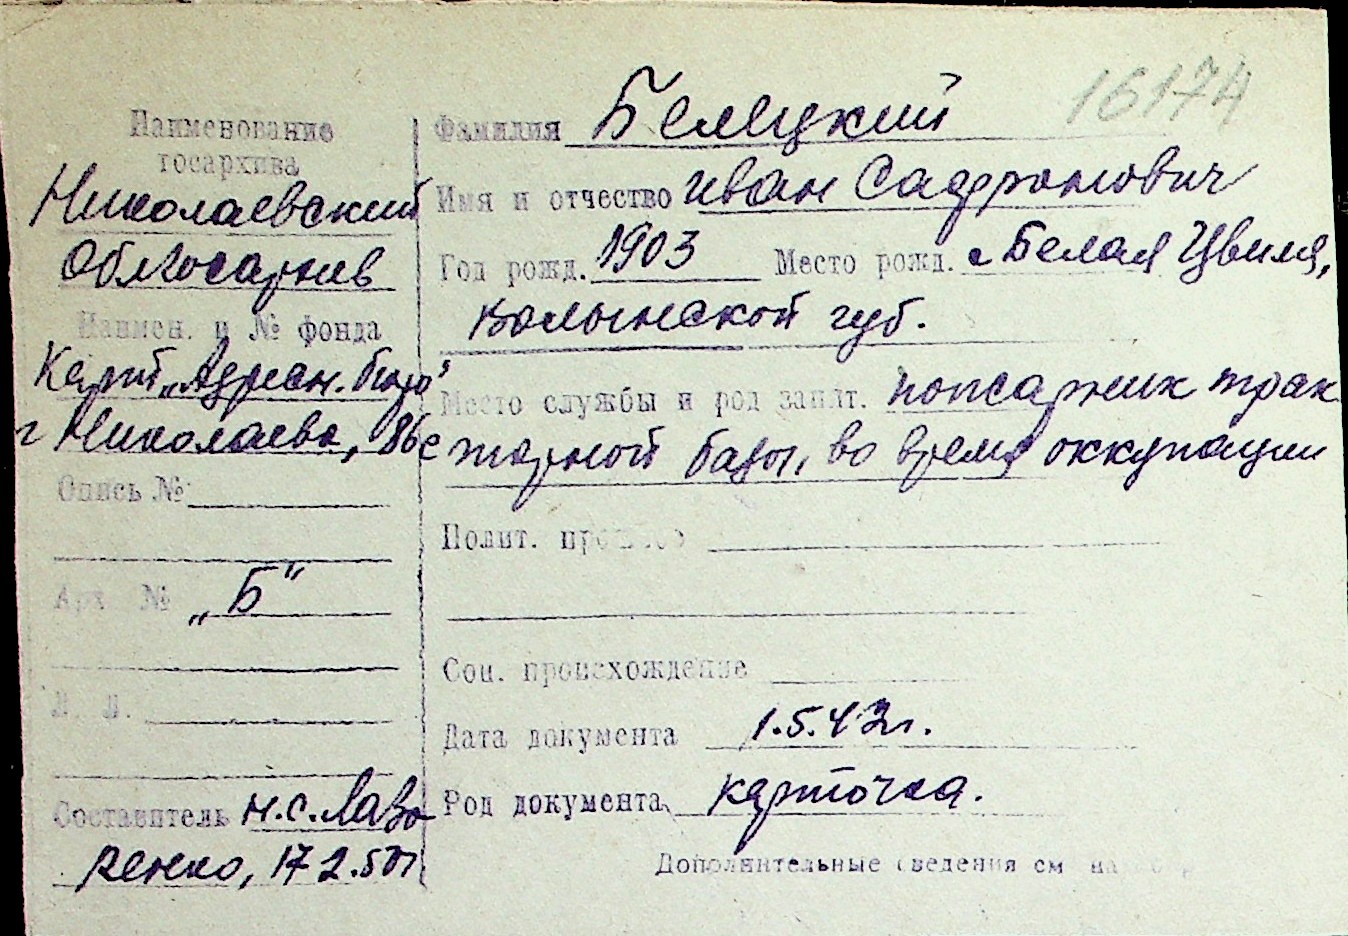 16174
Наименование
госархива
Николаевский
Облгосархив
Наимен. и № фонда
Карт. „Адресн. бюро"
г Николаева, 86с
Опись №
Арх №
„Б"
Л. Л.
Составитель Н.С. Лавр
ренко, 17 2.50г
Фамилия Белецкий
Имя и отчество Иван Сафронович
Год рожд. 1903 Место рожд. с Белая Цвиля,
Волынской губ.
Место службы и род занят. попсарник трак
торной базы, во время оккупации
Полит.
Соц. происхождение
Дата документа 1.5.42г.
Род документа карточка.
Дополнительные сведения см